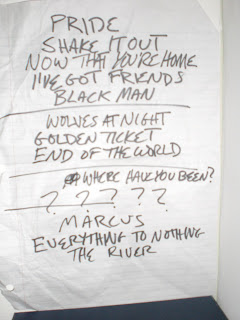 PRIDE
SHAKE IT OUT
NOW THAT YOU'RE HOME
I'VE GOT FRIENDS
BLACK MAN
WOLVES AT NIGHT
GOLDEN TICKET
END OF THE WORLD
WHERE HAVE YOU BEEN?
? ? ? ? ?
MARCUS
EVERYTHING TO NOTHING
THE RIVER